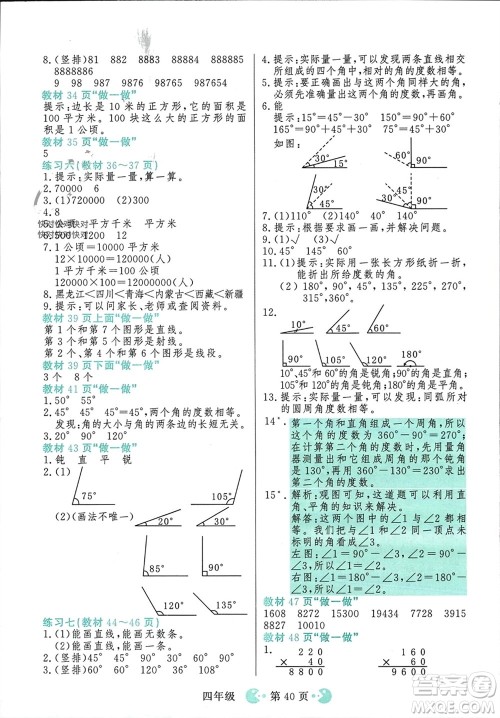 8.(竖排)81 882 8883 88884 888885
8888886
9 98 987 9876 98765 987654
教材34页“做一做”
提示:边长是10米的正方形,它的面积是
100平方米。100块这么大的正方形的面
积是1公顷。
教材35页“做一做”
5
练习六(教材36～37页)
1.提示:实际量一量,算一算。
2.70000 6
3.(1)√ (2)√ (3)×
4.8
5.公顷 平方千米 平方米
1200 12
7.1公顷=10000平方米
12×10000=120000(人)
1平方千米=1000000平方米
12×1000000=12000000(人)
8.黑龙江<四川<青海<内蒙古<西藏<新疆
9.提示:可以问家长、老师或查阅资料。
教材39页上面“做一做”
第1个和第7个图形是直线。
第2个和第5个图形是射线。
第3个和第6个图形是线段。
教材39页下面“做一做”
3个 8个
教材41页“做一做”
1.50° 55°
2.45° 45° 45° 45° 两个角的度数相等。
发现:角的大小与边的长短没有关系。
教材43页“做一做”
1.钝 直 平 锐
2.(1)
75°
105°
(2)(画法不唯一)
10°
45°
60°
90°
120°
练习七(教材44～46页)
1.(1)能画直线无数条。
(2)能画直线一条。
2.(竖排)45° 60° 30° 90° 120° 135°
3.(竖排)60° 60° 60° 90° 45° 45°
4.提示:实际量一量,可以发现两条直线相交
所组成的四个角中,相对的角的度数相等。
5.提示:实际量一量,折一折。
6.能
提示:15°=45°-30° 75°=45°+30°
165°=90°+45°+30°
如图:
30°
15°
30°
75°
45°
165°
7.(1)√ (2)×
8.锐角 直角 钝角
9.(1)√ (2)× (3)√
10.45° 90° 30° 60°
11.(1)提示:实际用一张长方形纸折一折,
并给折出的角标上度数。
(2)提示:先估一估,再量一量。
12.
10°
45°
60°
90°
105°
120°
180°
10°、45°和60°的角是锐角;90°的角是直角;
105°和120°的角是钝角;180°的角是平角。
13.提示:实际量一量,可以发现:同弧所对
的圆周角度数相等。
14*.第一个角和直角组成一个周角,所以第
一个角的度数为360°-90°=270°。
在计算第二个角的度数时,先用量角
器测量出和它组成周角的角的度数
是130°,再用360°-130°=230°求出
第二个角的度数。
15*.解析:观图可知,这道题可以利用直角、
平角的知识来解决。
解答:我发现∠1和∠2的度数相等。
我们可以把左、右两图中间没有
标明的角看作∠3。
左图:∠1=90°-∠3,∠2=90°-
∠3,所以∠1=∠2。
右图:∠1=180°-∠3,∠2=180°-
∠3,所以∠1=∠2。
教材47页“做一做”
1608 8272 15950 19434 7728 3852
8827 10010
教材48页“做一做”
160
× 60
9600
220
× 40
8800
四年级 第40页